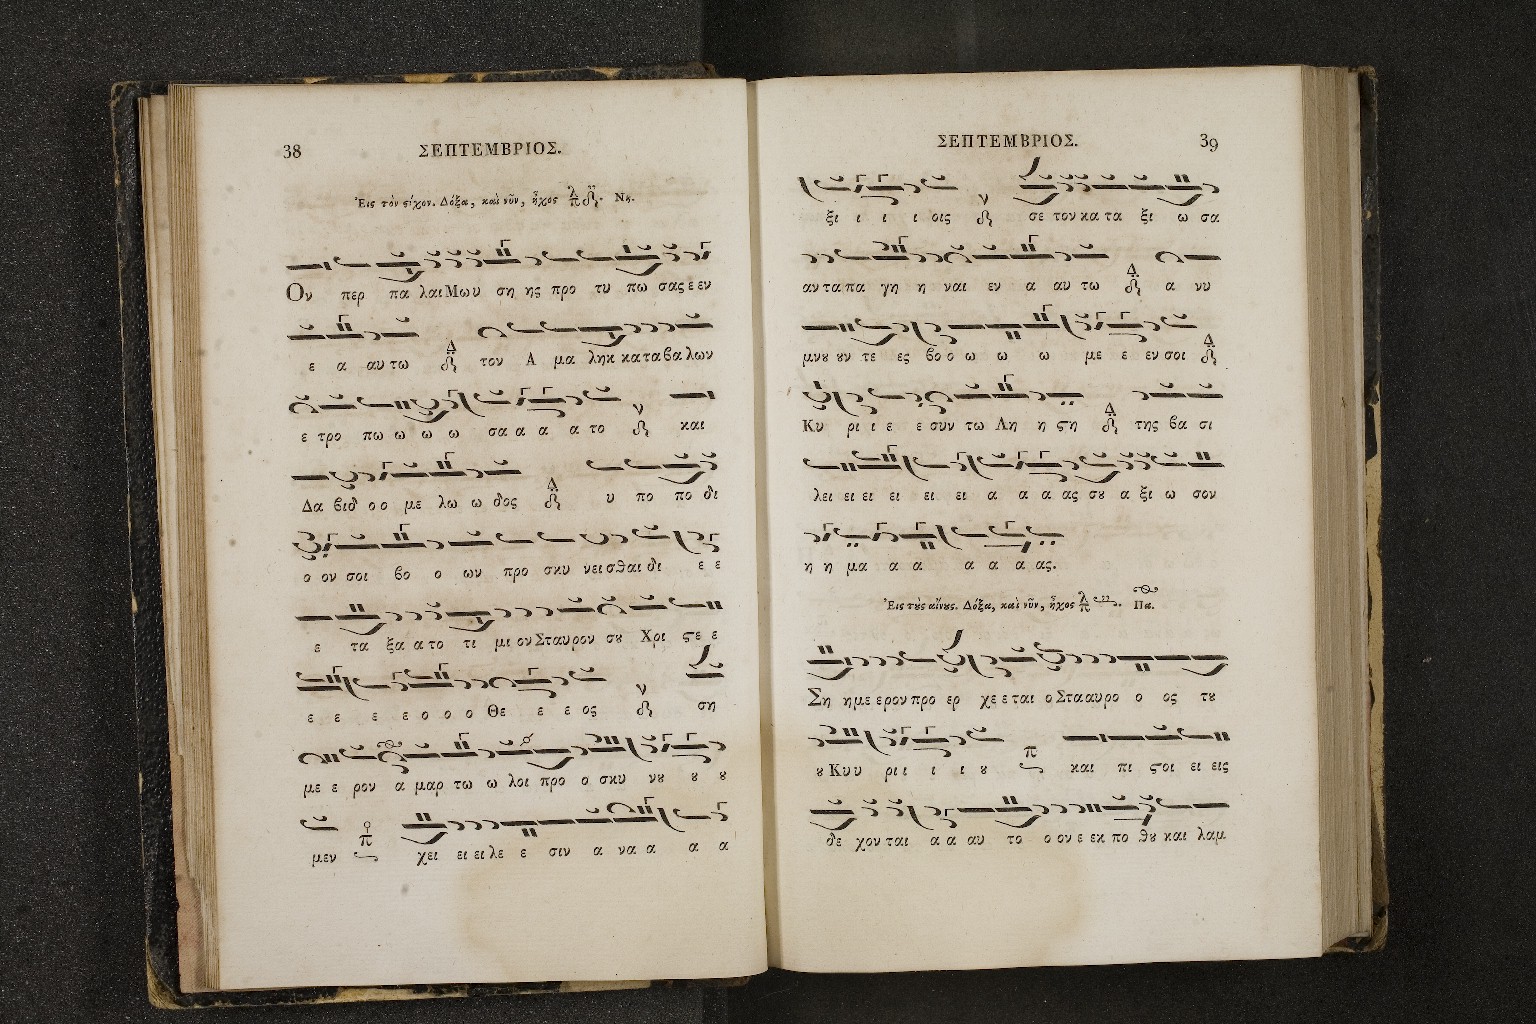 38
ΣΕΠΤΕΜΒΡΙΟΣ.
Ἐις τὸν ϛίχον. Δόξα, καὶ νῦν, ἦχος Νη.
Ον περ πα λαι Μωυ ση ης προ τυ πω σας ε εν
ε α αυ τω τον Α μα ληκ κα τα βα λων
ε τρο πω ω ω ω σα α α α το και
Δα βιδ ο ο με λω ω δος υ πο πο δι
ο ον σοι βο ο ων προ σκυ νεισθαι δι ε ε
ε τα ξα α το τι μι ον Σταυρον σȣ Χρι ϛε ε
ε ε ε ε ο ο ο Θε ε ε ος ση
με ε ρον α μαρ τω ω λοι προ ο σκυ νȣ ȣ ȣ
μεν π χει ει ει λε ε σιν α να α α α
ΣΕΠΤΕΜΒΡΙΟΣ.
39
ξι ι ι ι οις σε τον κα τα ξι ω σα
αν τα πα γη η ναι εν α αυ τω α νυ
μνȣ ȣν τε ες βο ο ω ω ω με ε εν σοι
Κυ ρι ι ε ε συν τω Λη η ϛη της βα σι
λει ει ει ει ει ει α α α ας σȣ α ξι ω σον
η η μα α α α α α ας.
Ἐις τȣ̀ς αἴνȣς. Δόξα, καὶ νῦν, ἦχος Πα.
Ση ημε ερον προ ερ χε ε ται ο Στα αυρο ο ος τȣ
ȣ Κυ υ ρι ι ι ι ȣ π και πι ϛοι ει εις
δε χον ται α α αυ το ο ον ε εκ πο θȣ και λαμ